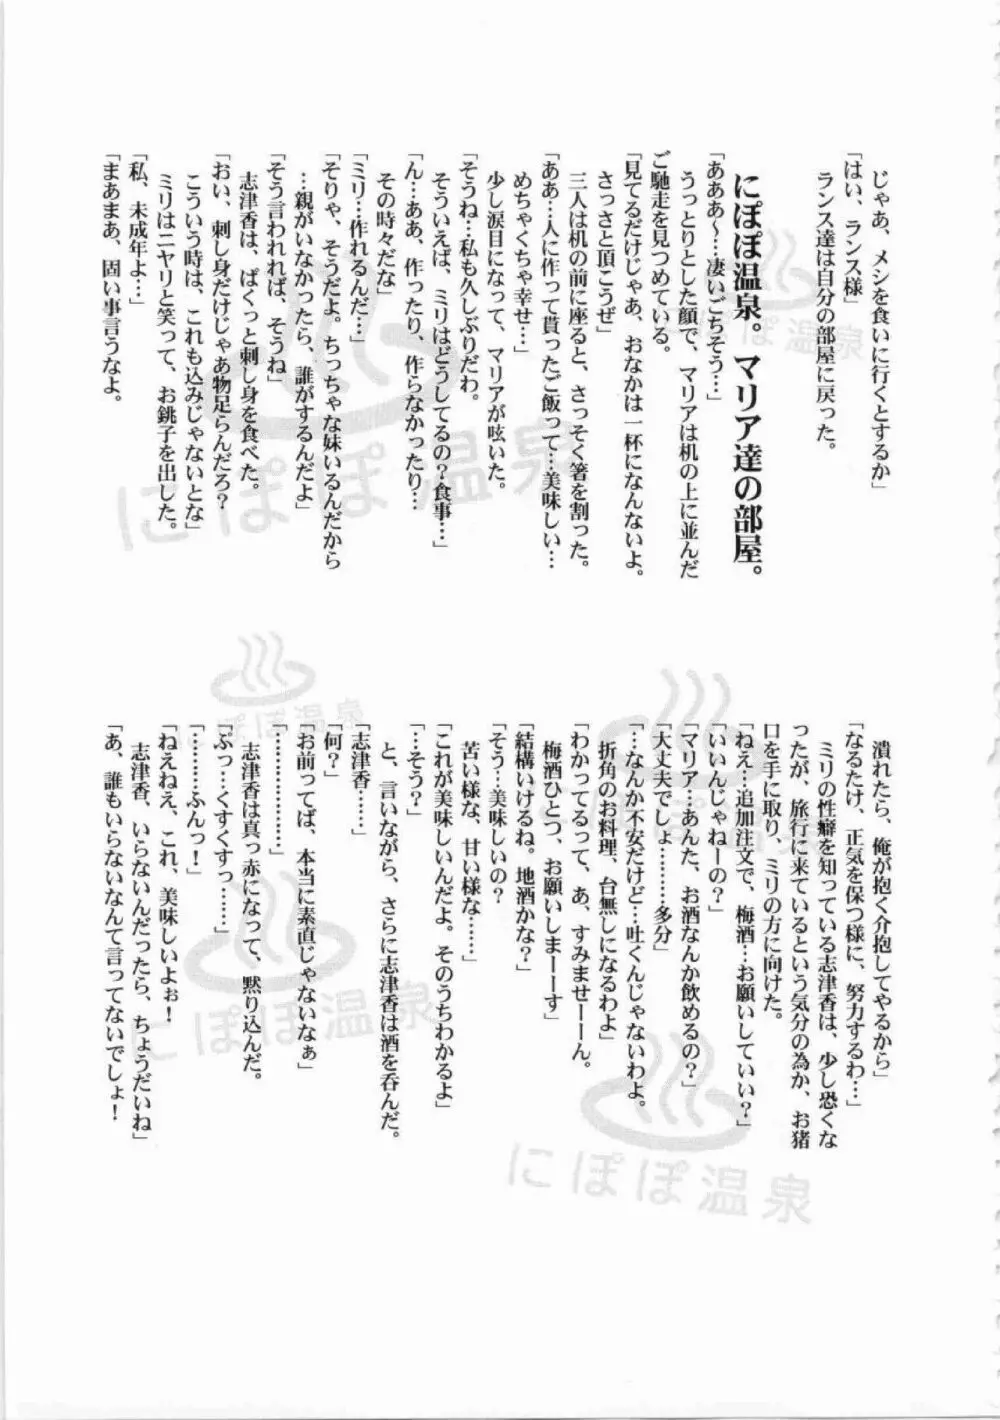 じゃあ、メシを食いに行くとするか」
「はい、ランス様」
ランス達は自分の部屋に戻った。
にぽぽ温泉。マリア達の部屋。
「あああ～…凄いごちそう…」
うっとりとした顔で、マリアは机の上に並んだ
ご馳走を見つめている。
「見てるだけじゃあ、おなかは一杯になんないよ。
さっさと頂こうぜ」
三人は机の前に座ると、さっそく箸を割った。
「ああ…人に作って貰ったご飯って…美味しい…
めちゃくちゃ幸せ…」
少し涙目になって、マリアが呟いた。
「そうね…私も久しぶりだわ。
そういえば、ミリはどうしてるの？食事…」
「ん…ああ、作ったり、作らなかったり…
その時々だな」
「ミリ…作れるんだ…」
「そりゃ、そうだよ。ちっちゃな妹いるんだから
…親がいなかったら、誰がするんだよ」
「そう言われれば、そうね」
志津香は、ぱくっと刺し身を食べた。
「おい、刺し身だけじゃあ物足らんだろ？
こういう時は、これも込みじゃないとな」
ミリはニヤリと笑って、お銚子を出した。
「私、未成年よ…」
「まあまあ、固い事言うなよ。
潰れたら、俺が抱く介抱してやるから」
「なるたけ、正気を保つ様に、努力するわ…」
ミリの性癖を知っている志津香は、少し恐くな
ったが、旅行に来ているという気分の為か、お猪
口を手に取り、ミリの方に向けた。
「ねえ…追加注文で、梅酒…お願いしていい？」
「いいんじゃねーの？」
「マリア…あんた、お酒なんか飲めるの？」
「大丈夫でしょ………多分」
「…なんか不安だけど…吐くんじゃないわよ。
折角のお料理、台無しになるわよ」
「わかってるって、あ、すみませーーん。
梅酒ひとつ、お願いしまーーす」
「結構いけるね。地酒かな？」
「そう…美味しいの？
苦い様な、甘い様な……」
「これが美味しいんだよ。そのうちわかるよ」
「…そう？」
と、言いながら、さらに志津香は酒を呑んだ。
「志津香……」
「何？」
「お前ってば、本当に素直じゃないなぁ」
「………………」
志津香は真っ赤になって、黙り込んだ。
「ぷっ…くすくすっ……」
「………ふんっ！」
「ねえねえ、これ、美味しいよぉ！
志津香、いらないんだったら、ちょうだいね」
「あ、誰もいらないなんて言ってないでしょ！
にぽぽ温泉
にぽぽ温泉
にぽぽ温泉
にぽぽ温泉
にぽぽ温泉
にぽぽ温泉